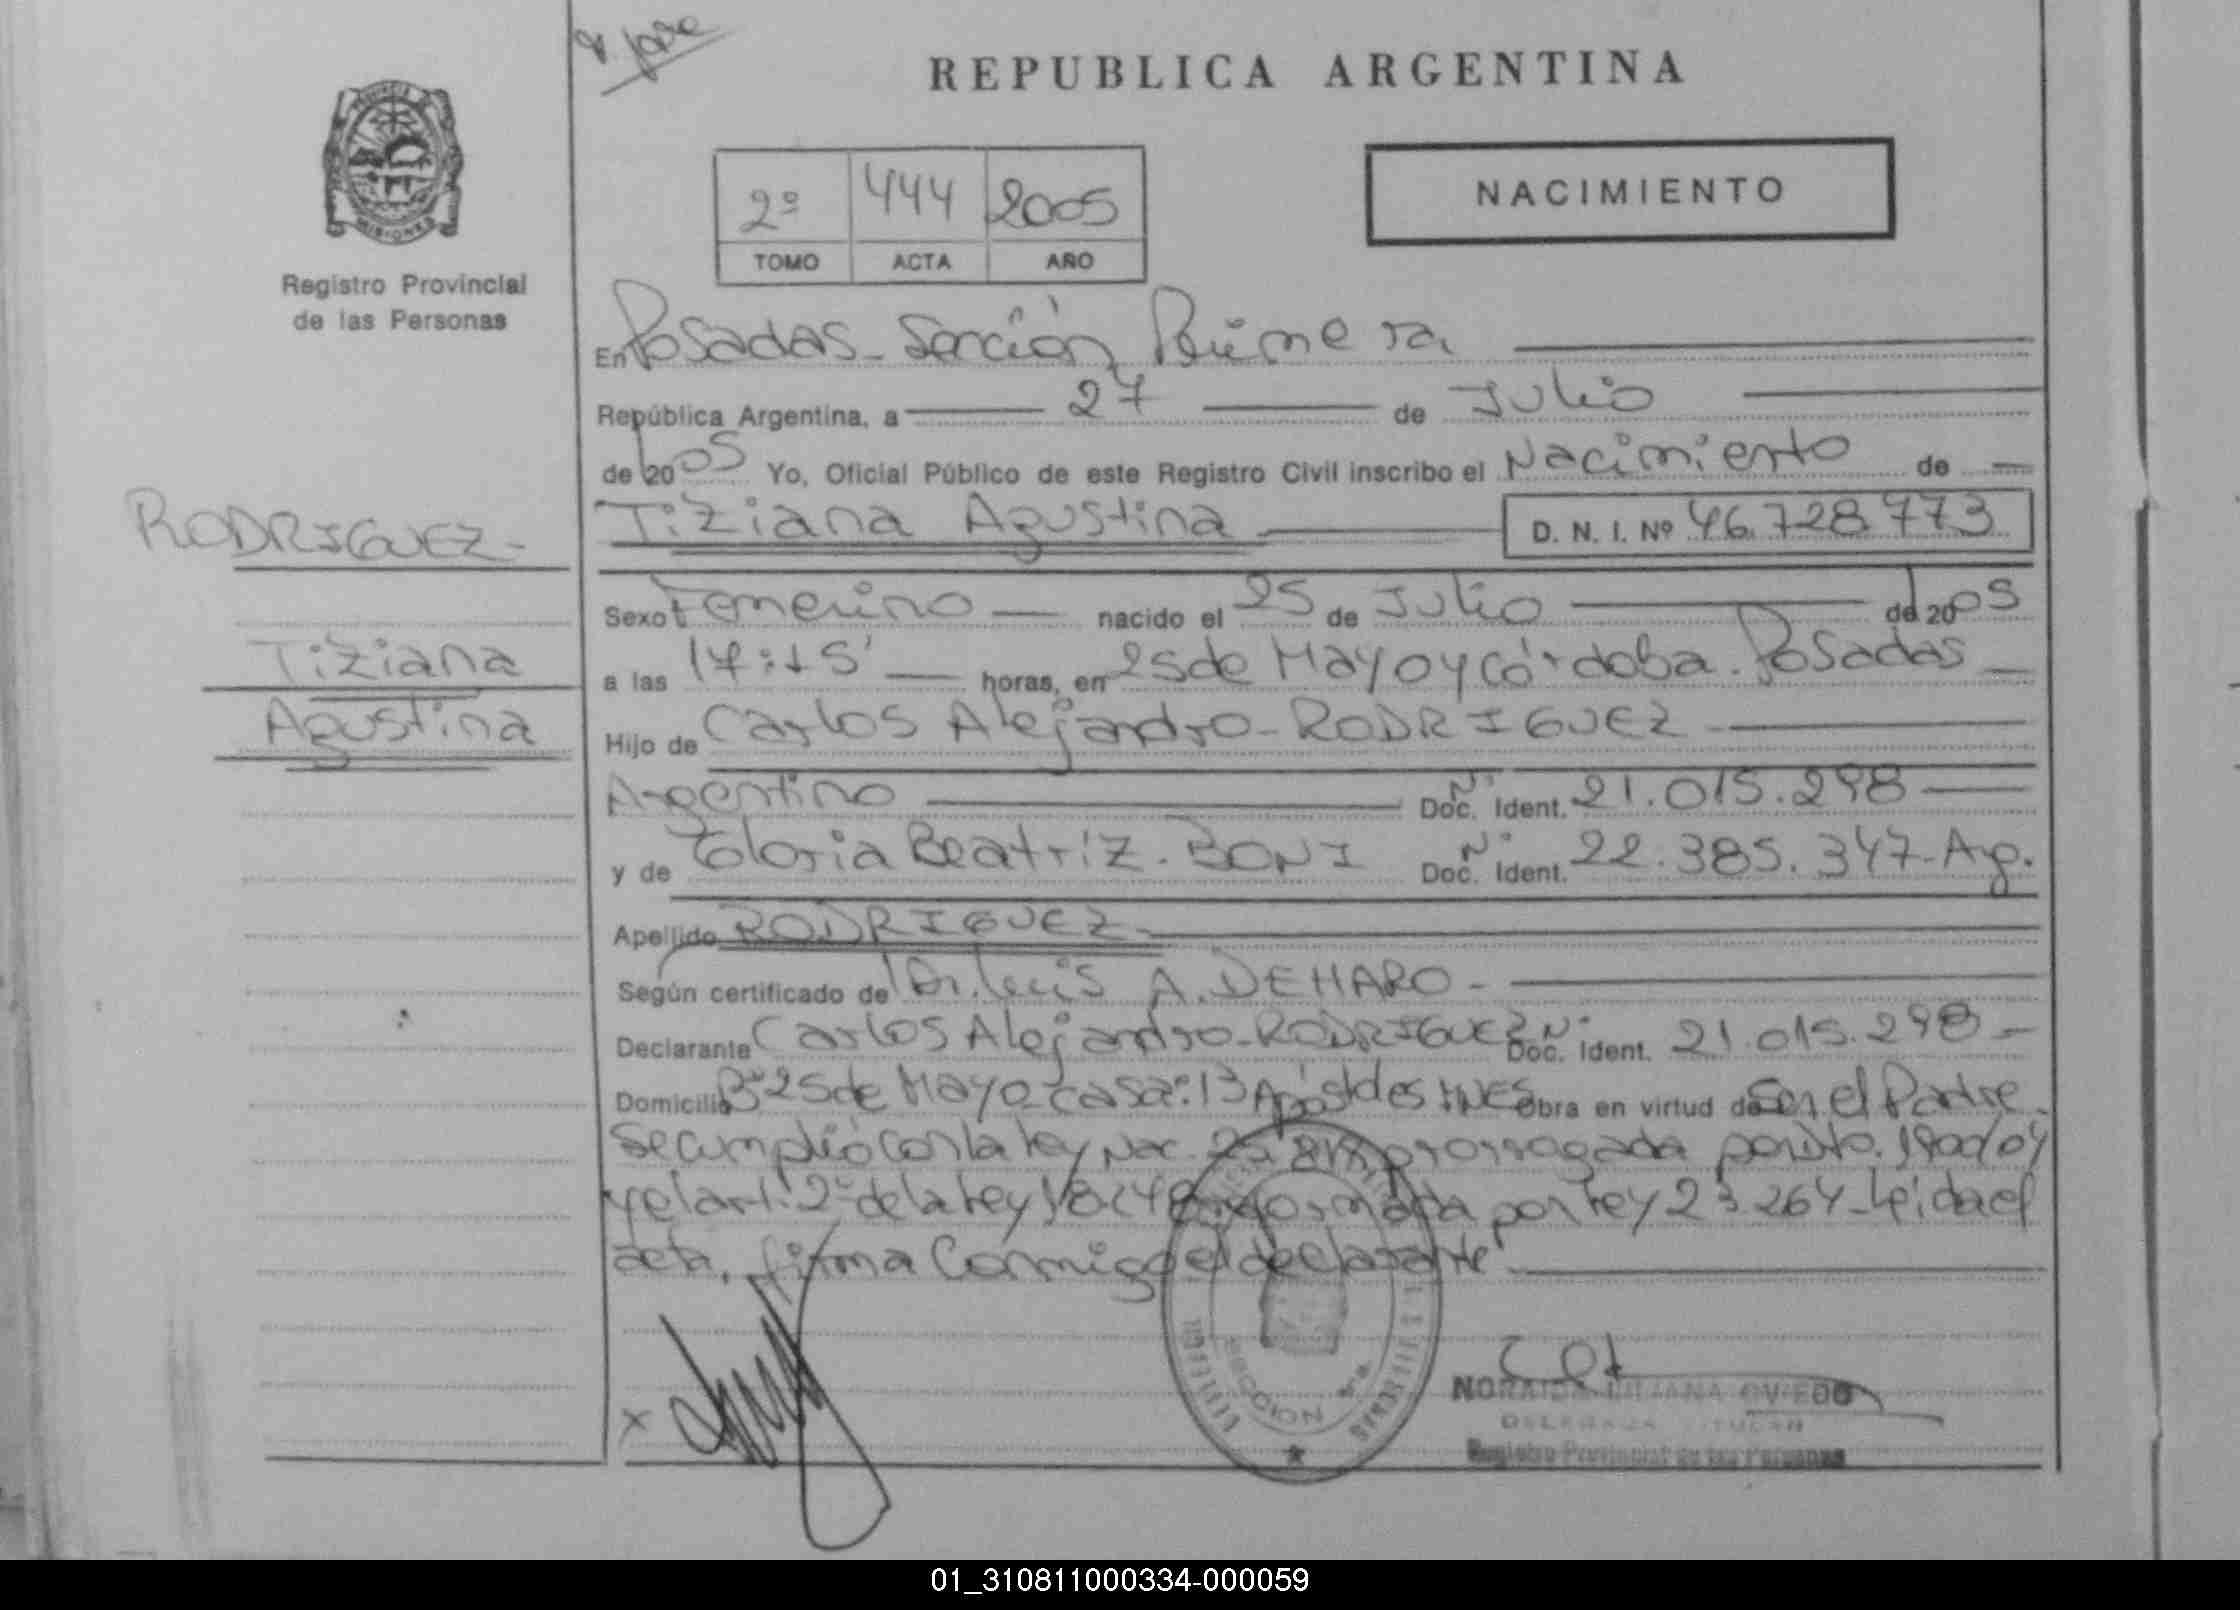 REPUBLICA ARGENTINA
PROVINCIA DE MISIONES
Registro Provincial
de las Personas
2º 444 2005
TOMO ACTA AÑO
NACIMIENTO
En Posadas - Sección Primera
República Argentina, a 27 de Julio
de 2005 Yo, Oficial Público de este Registro Civil inscribo el Nacimiento de
Tiziana Agustina D. N. I. Nº 46.728.773
RODRIGUEZ-
Tiziana
Agustina
Sexo Femenino nacido el 25 de Julio de 2005
a las 17:15' horas, en 25 de Mayo y Córdoba. Posadas
Hijo de Carlos Alejandro - RODRIGUEZ
Argentino Nº Doc. Ident. 21.015.298
y de Gloria Beatriz. BONI Nº Doc. Ident. 22.385.347-Arg.
Apellido RODRIGUEZ-
Según certificado de Dr. Luis A. DEHARO-
Declarante Carlos Alejandro - RODRIGUEZ Nº Doc. Ident. 21.015.298-
Domicilio Bº 25 de Mayo - casa: 13 Apóstoles Mnes obra en virtud de Ser el Padre.
Se cumplió con la Ley Nac. 25.818 prorrogada por Dto. 1900/04
y el art. 2º de la Ley 18.248 reformada por Ley 23.264 - Leída el
acta, firma Conmigo el declarante
SECCION 1ra
NORAIDA LILIANA OVIEDO
DELEGADA TITULAR
Registro Provincial de las Personas
01_310811000334-000059